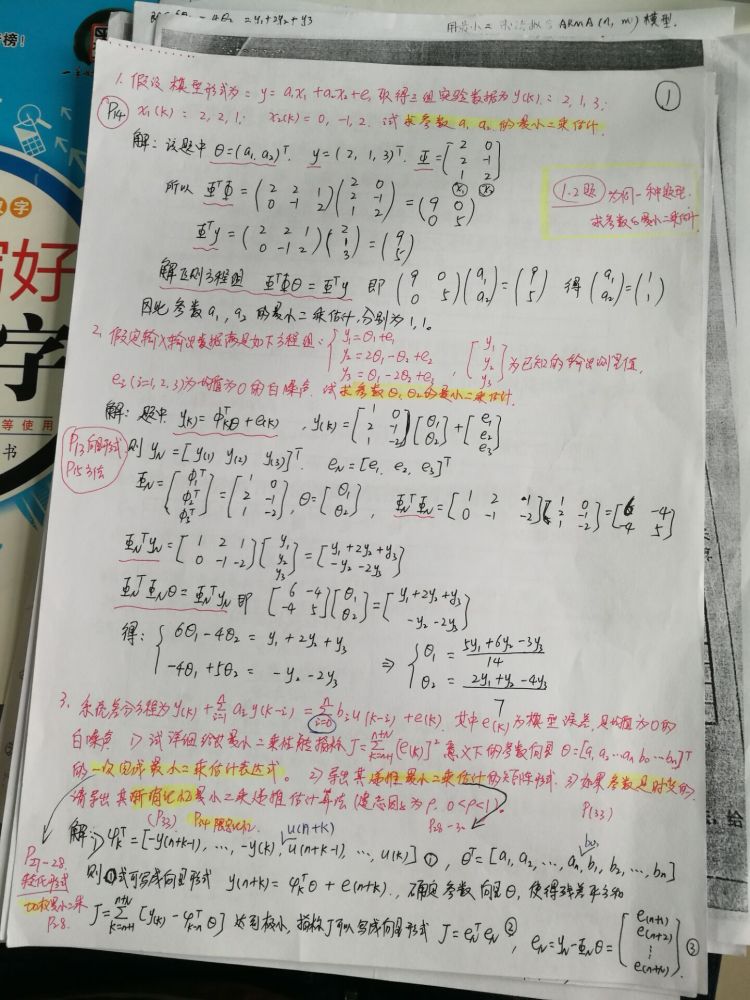 = y₁+2y₂+y₃
ARMA(n, m) 模型.
①
1. 假设模型形式为: y = a₁x₁ + a₂x₂ + e, 取得三组实验数据为 y(k): 2, 1, 3;
P14
x₁(k): 2, 2, 1; x₂(k) = 0, -1, 2. 试求参数 a₁, a₂ 的最小二乘估计.
解: 该题中 θ=(a₁, a₂)ᵀ. y=(2, 1, 3)ᵀ. Φ=[2 0; 2 -1; 1 2]
x₁ x₂
所以 ΦᵀΦ = (2 2 1; 0 -1 2)(2 0; 2 -1; 1 2) = (9 0; 0 5)
1.2题 为同一种题型.
求参数的最小二乘估计
Φᵀy = (2 2 1; 0 -1 2)(2; 1; 3) = (9; 5)
解正则方程组 ΦᵀΦθ = Φᵀy 即 (9 0; 0 5)(a₁; a₂) = (9; 5) 得 (a₁; a₂) = (1; 1)
因此参数 a₁, a₂ 的最小二乘估计分别为 1, 1.
2. 假定输入输出数据满足如下方程组: {y₁=θ₁+e₁; y₂=2θ₁-θ₂+e₂; y₃=θ₁-2θ₂+e₃, [y₁; y₂; y₃] 为已知的输出测量值,
eᵢ (i=1, 2, 3) 为均值为0的白噪声. 试求参数 θ₁, θ₂ 的最小二乘估计.
解: 题中 y(k) = φₖᵀθ + e(k), y(k) = [1 0; 2 -1; 1 -2][θ₁; θ₂] + [e₁; e₂; e₃]
P13 向量形式
P15 方法
则 yN = [y(1) y(2) y(3)]ᵀ. eN = [e₁, e₂, e₃]ᵀ
ΦN = [φ₁ᵀ; φ₂ᵀ; φ₃ᵀ] = [1 0; 2 -1; 1 -2], θ = [θ₁; θ₂], ΦNᵀΦN = [1 2 1; 0 -1 -2][1 0; 2 -1; 1 -2] = [6 -4; -4 5]
ΦNᵀyN = [1 2 1; 0 -1 -2][y₁; y₂; y₃] = [y₁+2y₂+y₃; -y₂-2y₃]
ΦNᵀΦNθ = ΦNᵀyN 即 [6 -4; -4 5][θ₁; θ₂] = [y₁+2y₂+y₃; -y₂-2y₃]
得: {6θ₁-4θ₂ = y₁+2y₂+y₃; -4θ₁+5θ₂ = -y₂-2y₃ ⇒ {θ₁ = (5y₁+6y₂-3y₃)/14; θ₂ = (2y₁+y₂-4y₃)/7
3. 系统差分方程为 y(k) + Σⁿᵢ₌₁ aᵢ y(k-i) = Σⁿᵢ₌₀ bᵢ u(k-i) + e(k). 其中 e(k) 为模型误差, 是均值为0的
白噪声. 1) 试详细给出最小二乘性能指标 J = Σⁿ⁺ᴺₖ₌ₙ₊₁ (e(k))² 意义下的参数向量 θ=[a₁ a₂ … aₙ b₀ … bₙ]ᵀ
的一次完成最小二乘估计表达式. 2) 导出其递推最小二乘估计的矩阵形式. 3) 如果参数是时变的.
请导出其渐消记忆最小二乘递推估计算法 (遗忘因子为 ρ, 0<ρ<1).
(P33) P34 限定记忆 P28-30 P(33)
解: 1) φₖᵀ = [-y(n+k-1), …, -y(k), u(n+k) u(n+k-1), …, u(k)] ①, θᵀ = [a₁, a₂, …, aₙ, b₀, b₁, b₂, … bₙ]
P27-28.
则①式可写成向量形式 y(n+k) = φₖᵀθ + e(n+k), 确定参数向量θ, 使得残差平方和
P28.
J = Σⁿ⁺ᴺₖ₌ₙ₊₁ [y(k) - φᵀₖ₋ₙ θ] 达到极小, 指标J可以写成向量形式 J = eNᵀeN ②, eN = yN - ΦNθ = [e(n+1); e(n+2); ⋮; e(n+N)] ③